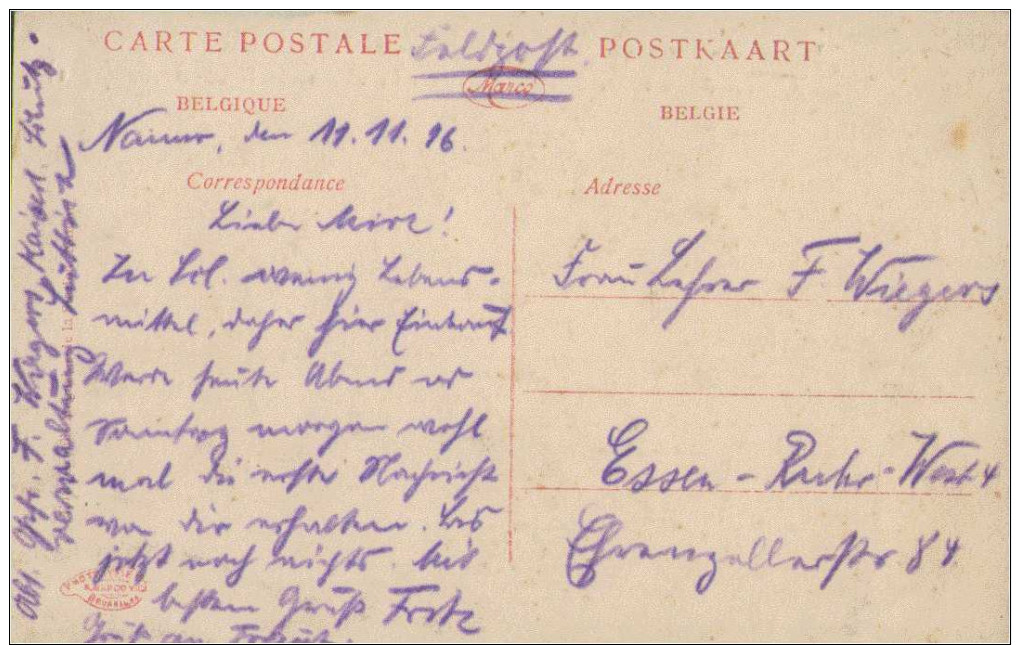 CARTE POSTALE Feldpost. POSTKAART
Marco
BELGIQUE
BELGIE
Namur, den 11.11.16.
Correspondance
Adresse
Liebe
In wenig Lebens-
mittel, daher hier Einkauf
Werde heute Abend od
Sonntag morgen wohl
mal die erste Nachricht
von dir erhalten. Bis
jetzt noch nichts. Mit
besten Gruß Fritz
Gruß an
Frau Lehrer F. Wiegers
Essen-Ruhr-West 4
Ehrenzellerstr 84
Abs. Gefr. F. Wiegers Kaiserl.
verwaltung Lüttich